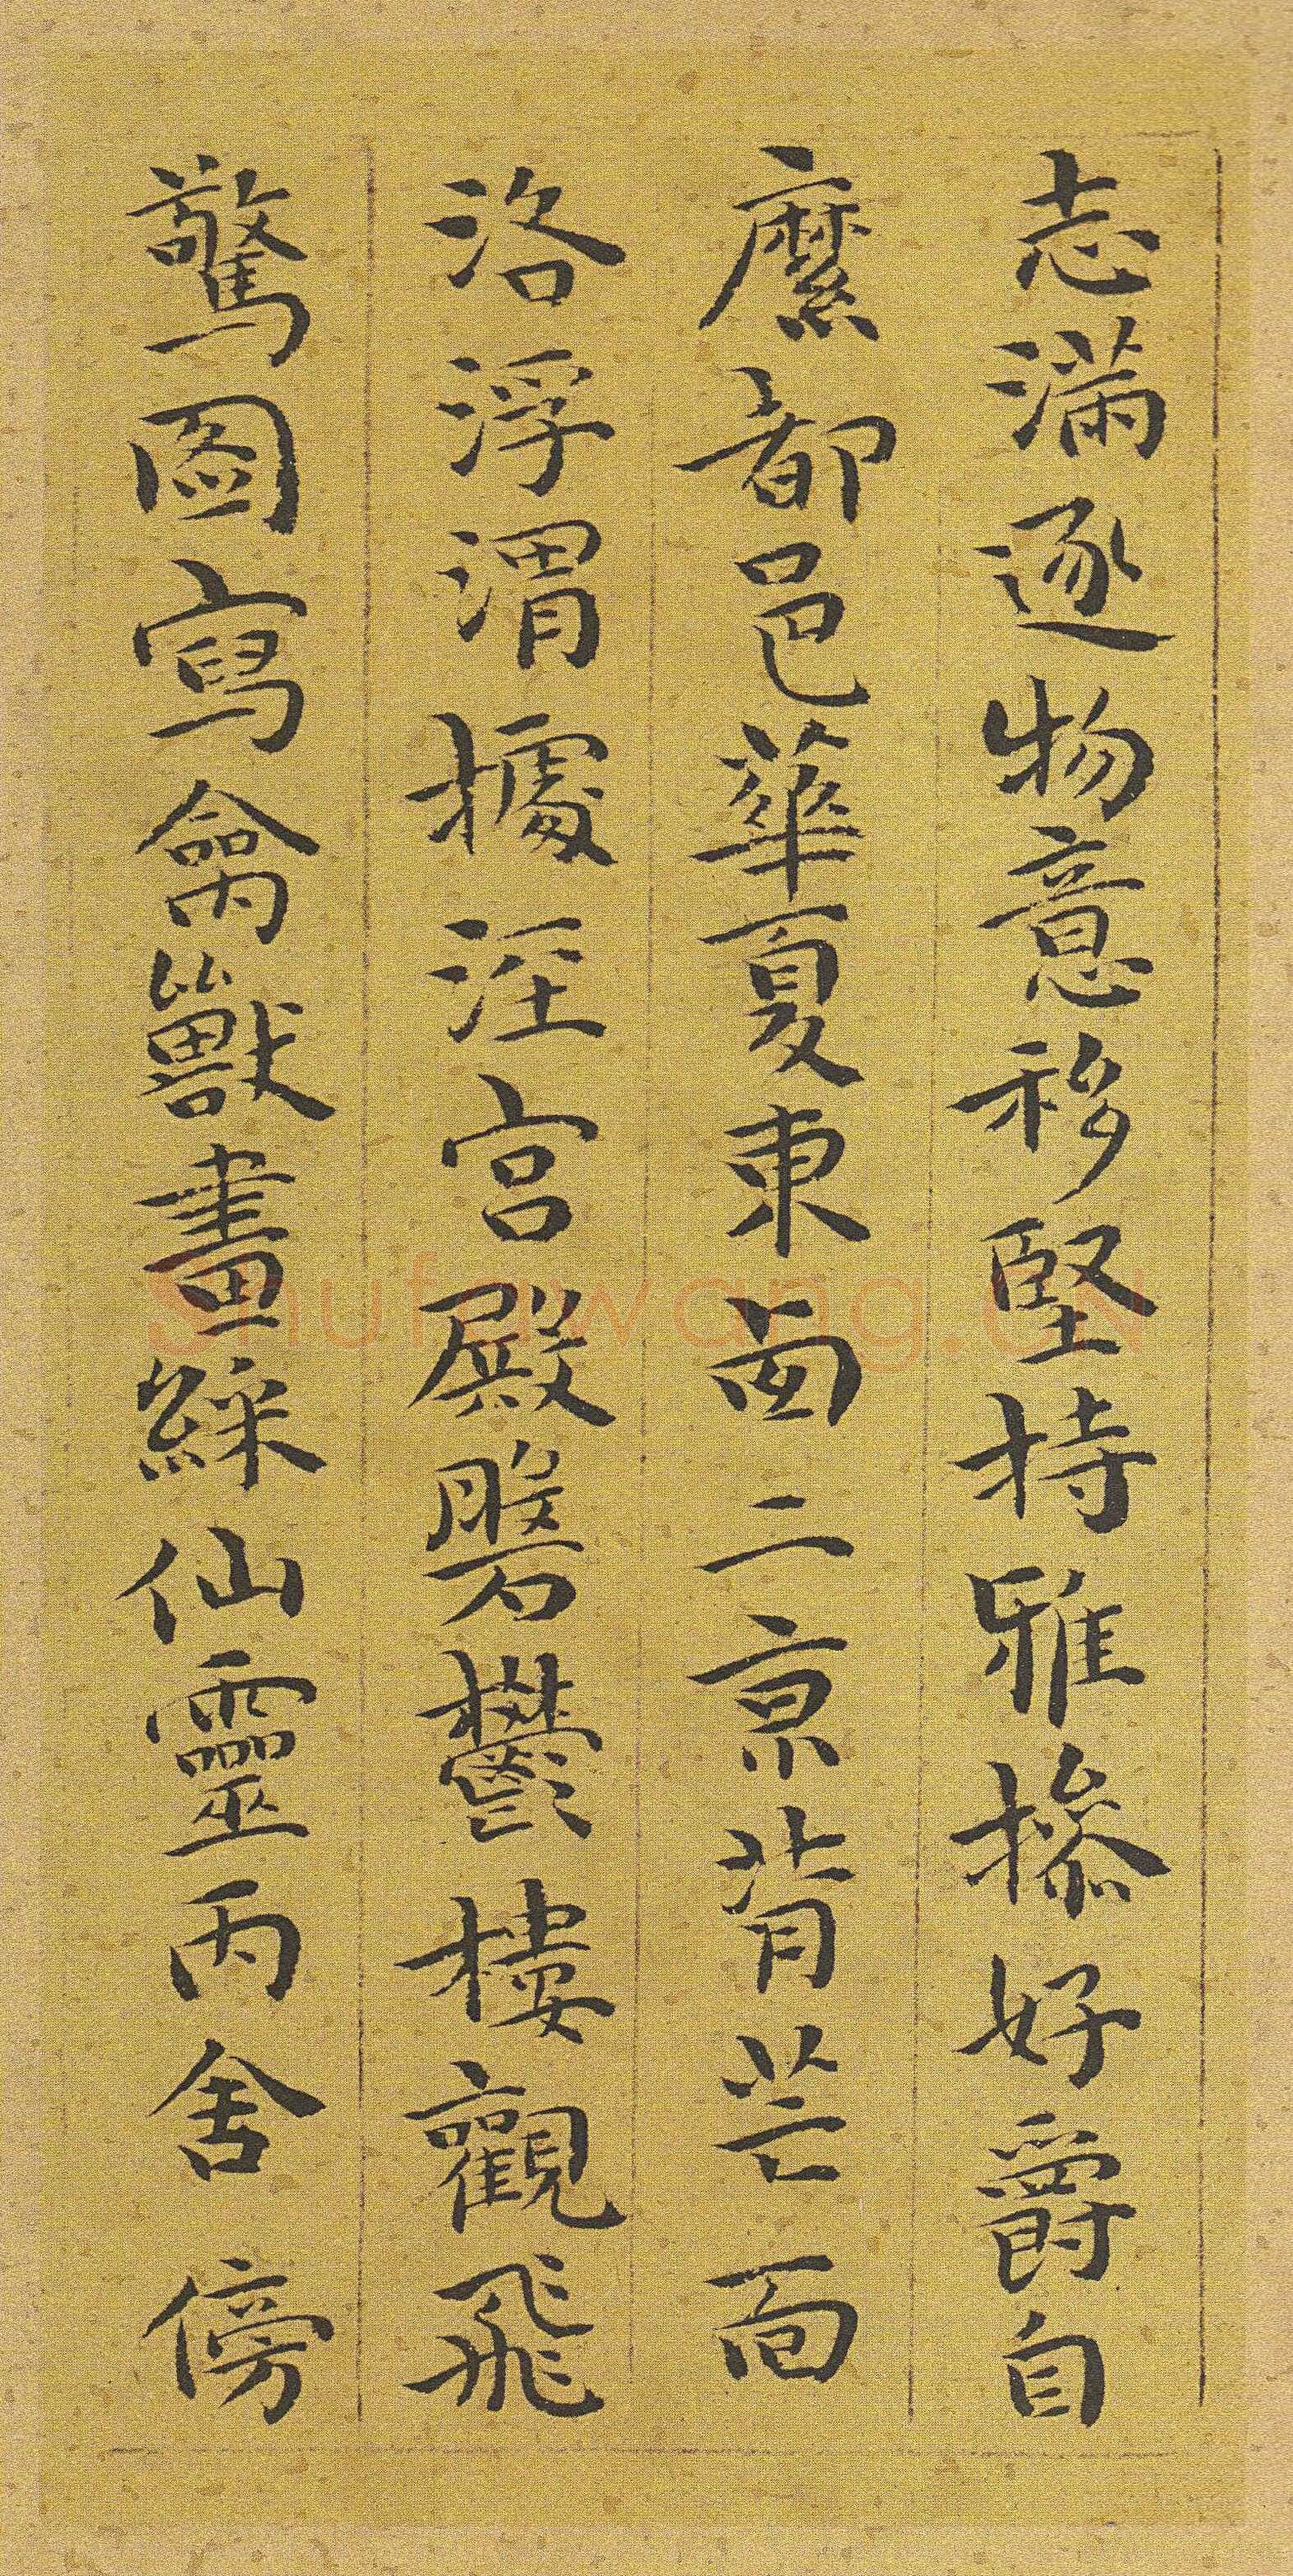 志滿逐物意移堅持雅操好爵自
縻都邑華夏東西二京背芒面
洛浮渭據涇宮殿磐鬱樓觀飛
驚圖寫禽獸畫綵仙靈丙舍傍
Shufawang.CN